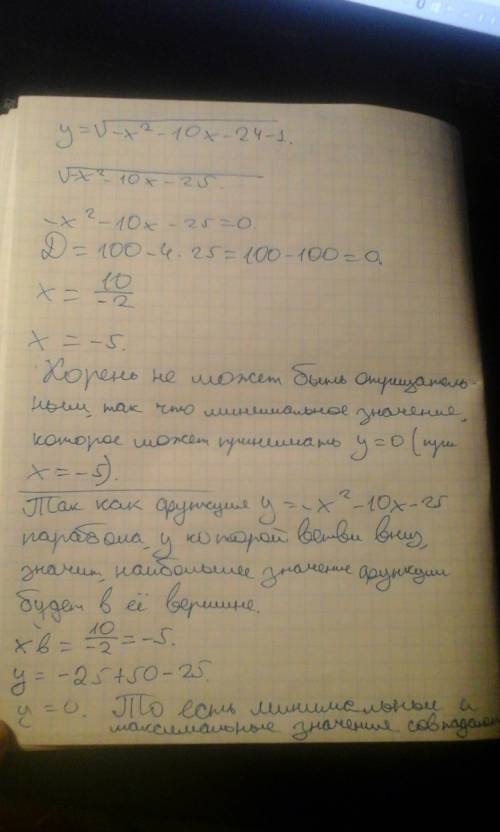 y = √-x² - 10x - 24 - 1.
√-x² - 10x - 25.
-x² - 10x - 25 = 0.
D = 100 - 4 · 25 = 100 - 100 = 0.
x = 10/-2
x = -5.
Корень не может быть отрицатель-
ным, так что минимальное значение,
которое может принимать y = 0 (при
x = -5).
Так как функция y = -x² - 10x - 25
парабола, у которой ветви вниз,
значит, наибольшее значение функции
будет в её вершине.
xв = 10/-2 = -5.
y = -25 + 50 - 25.
y = 0. То есть минимальные и
максимальные значения совпадают